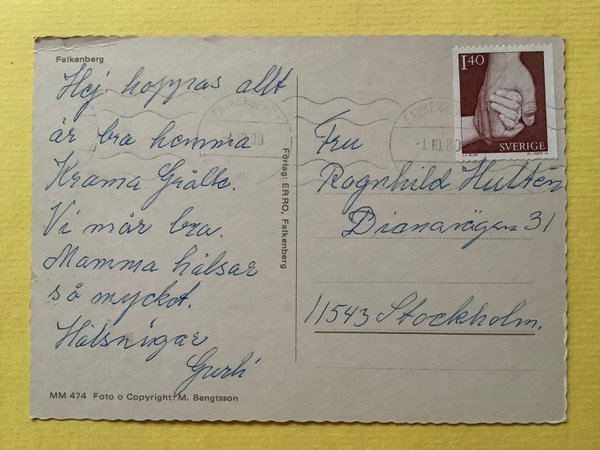 Falkenberg
Hej hoppas allt
är bra hemma
Krama Grålto.
Vi mår bra.
Mamma hälsar
så mycket.
Hälsnigar
Gurli
MM 474 Foto o Copyright: M. Bengtsson
Förlag: ERRO, Falkenberg
FALKENBERG
-1.10.80
FALKENBERG
-1.10.80
1.40
SVERIGE
Fru
Ragnhild Hultén
Dianavägen 31
11543 Stockholm.